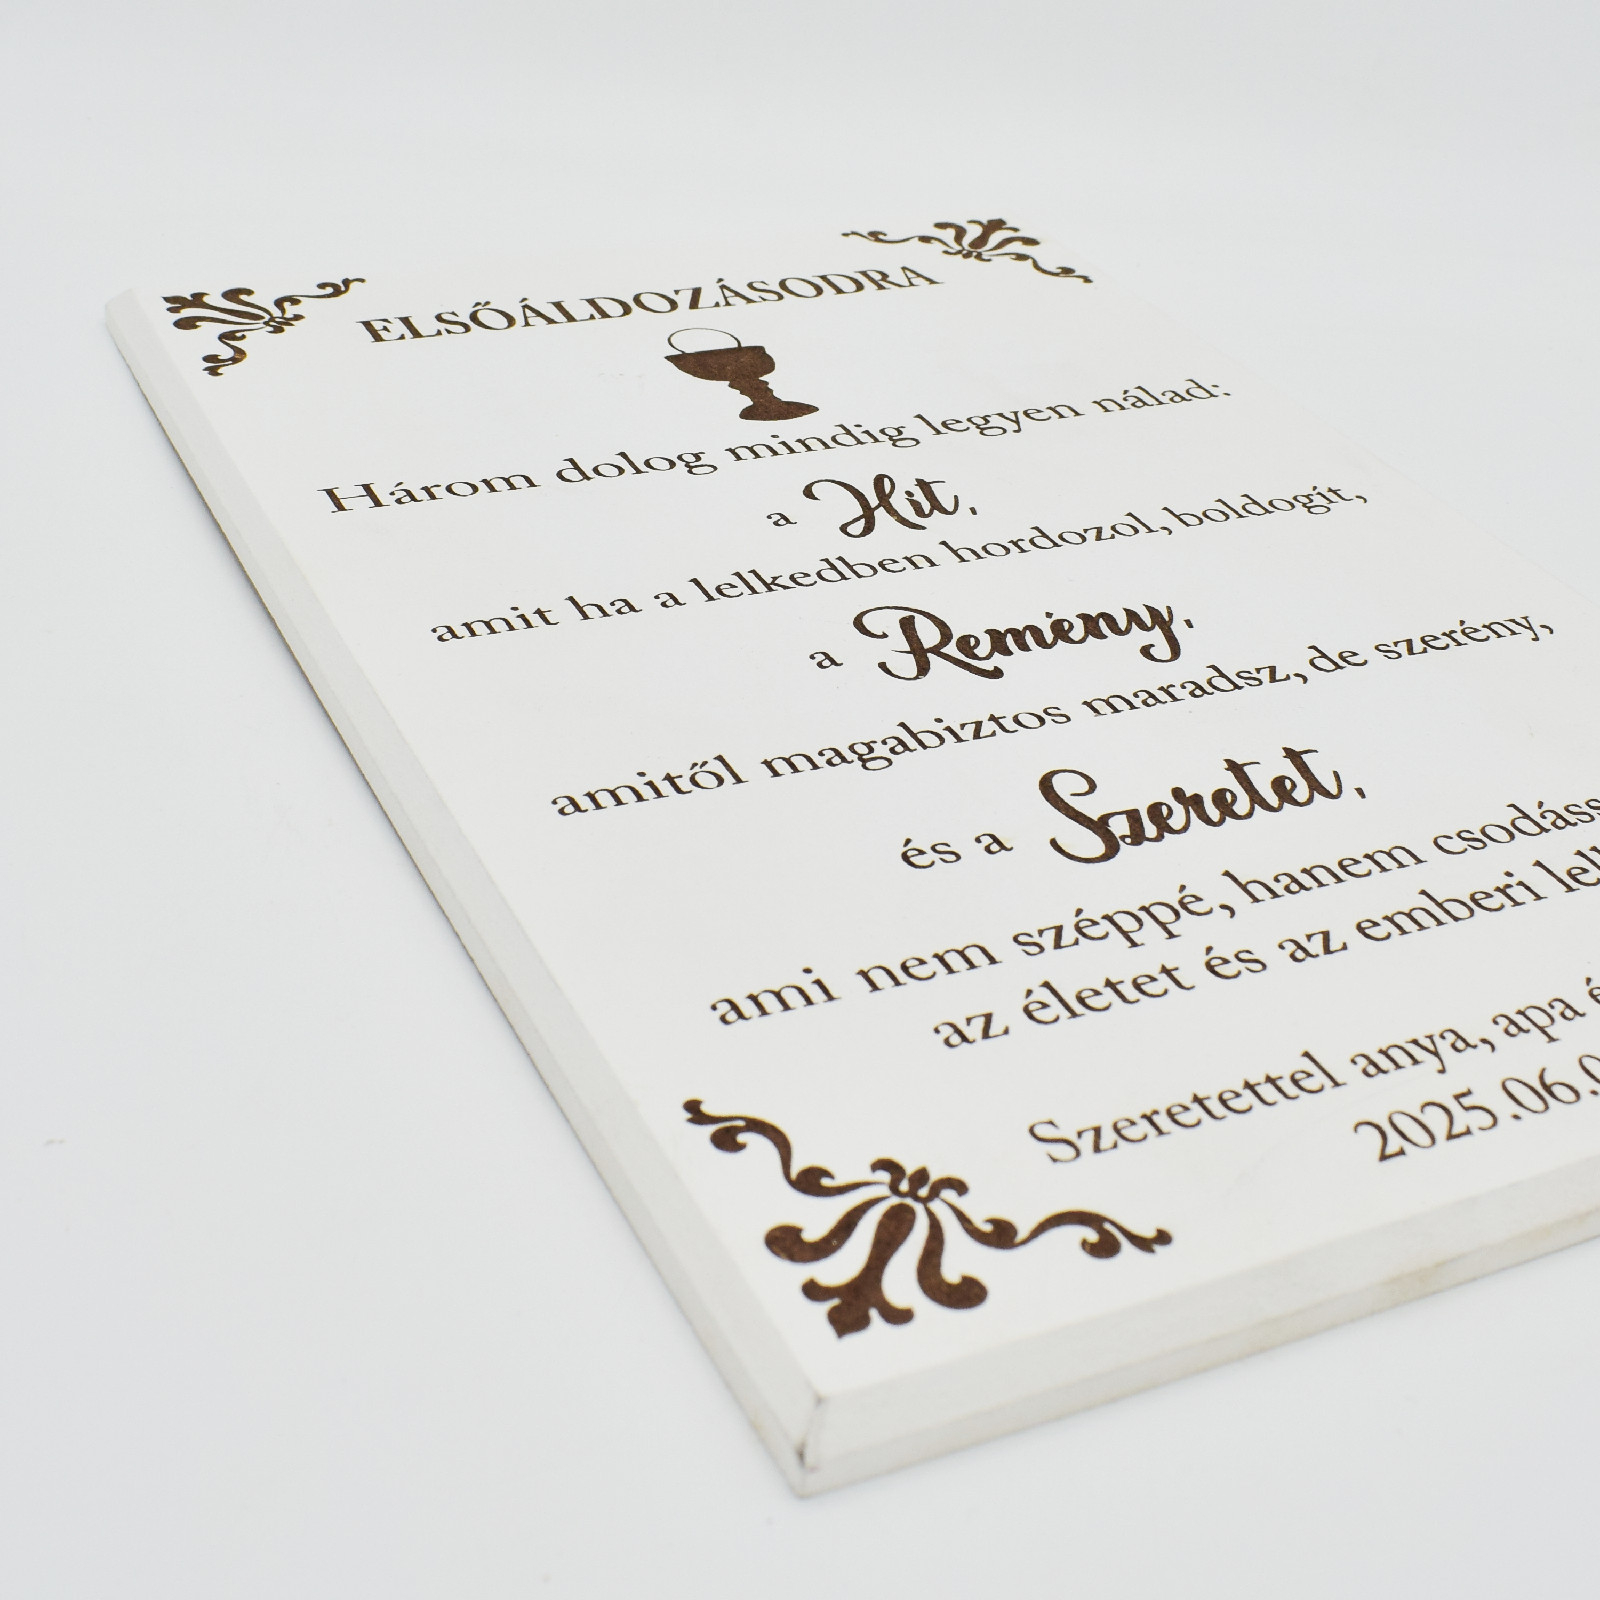 ELSŐÁLDOZÁSODRA
Három dolog mindig legyen nálad:
a Hit,
amit ha a lelkedben hordozol, boldogít,
a Remény,
amitől magabiztos maradsz, de szerény,
és a Szeretet,
ami nem széppé, hanem
az életet és az emberi
Szeretettel anya, apa
2025.06.